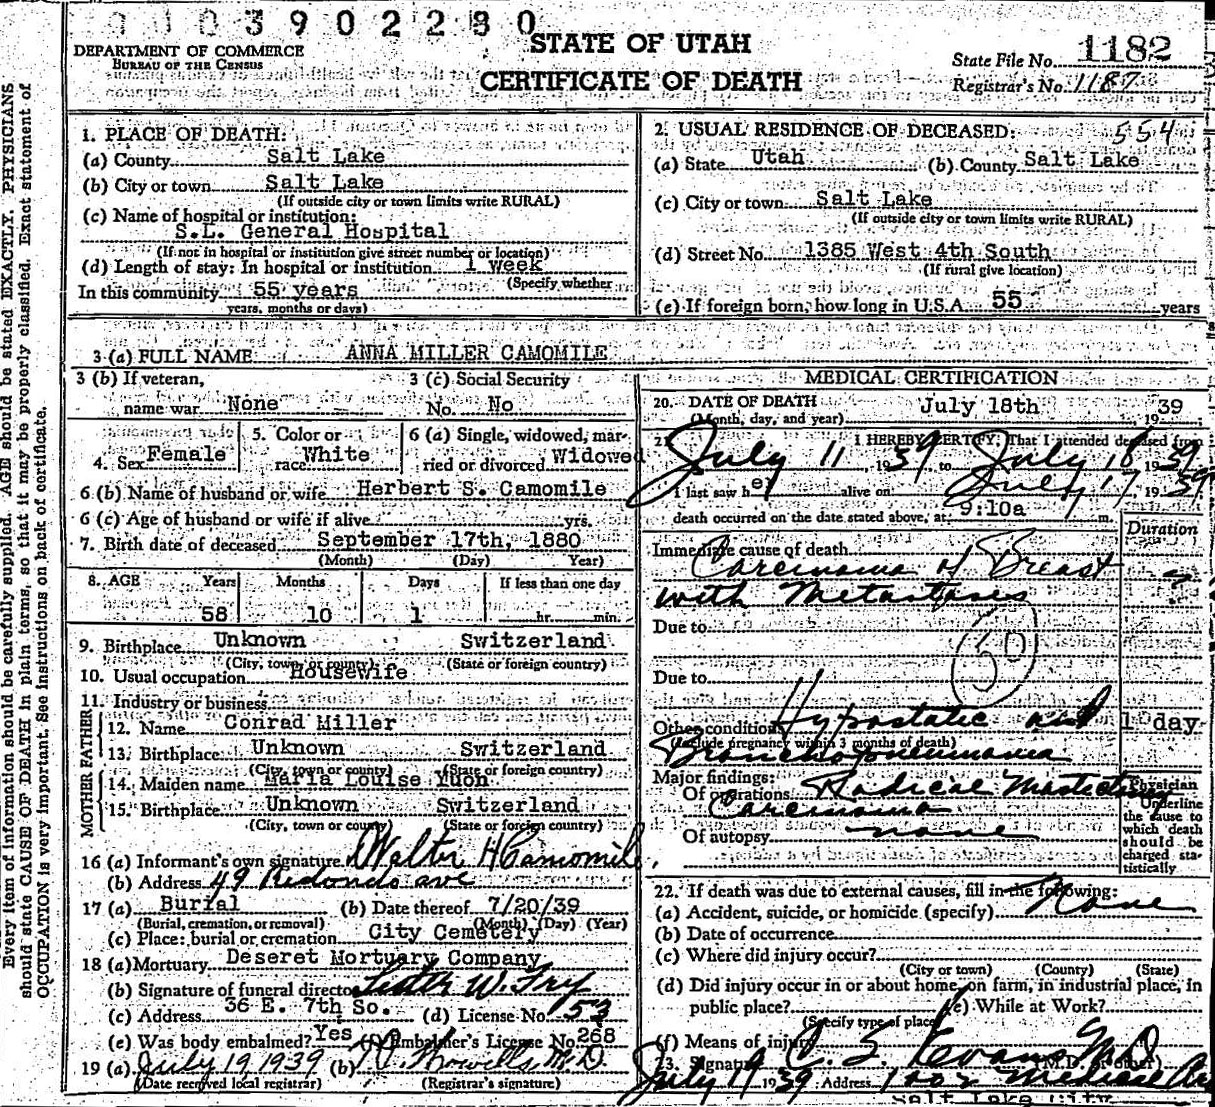 0 1 0 3 9 0 2 2 8 0
DEPARTMENT OF COMMERCE
BUREAU OF THE CENSUS
STATE OF UTAH
CERTIFICATE OF DEATH
State File No. 1182
Registrar's No. 1187
Every item of information should be carefully supplied. AGE should be stated EXACTLY. PHYSICIANS
should state CAUSE OF DEATH in plain terms, so that it may be properly classified. Exact statement of
OCCUPATION is very important. See instructions on back of certificate.
1. PLACE OF DEATH:
(a) County Salt Lake
(b) City or town Salt Lake
(If outside city or town limits write RURAL)
(c) Name of hospital or institution:
S.L. General Hospital
(If not in hospital or institution give street number or location)
(d) Length of stay: In hospital or institution 1 week
(Specify whether
In this community 55 years
years, months or days)
2. USUAL RESIDENCE OF DECEASED: 554
(a) State Utah (b) County Salt Lake
(c) City or town Salt Lake
(If outside city or town limits write RURAL)
(d) Street No. 1385 West 4th South
(If rural give location)
(e) If foreign born, how long in U.S.A. 55 years
3 (a) FULL NAME ANNA MILLER CAMOMILE
3 (b) If veteran, 3 (c) Social Security
name war None No. No
4. Sex Female 5. Color or race White 6 (a) Single, widowed, married or divorced Widowed
6 (b) Name of husband or wife Herbert S. Camomile
6 (c) Age of husband or wife if alive yrs.
7. Birth date of deceased September 17th, 1880
(Month) (Day) Year)
8. AGE Years Months Days If less than one day
58 10 1 hr. min.
9. Birthplace Unknown Switzerland
(City, town or county) (State or foreign country)
10. Usual occupation Housewife
11. Industry or business
FATHER
12. Name Conrad Miller
13. Birthplace Unknown Switzerland
(City, town or county) (State or foreign country)
MOTHER
14. Maiden name Maria Louise Yuon
15. Birthplace Unknown Switzerland
(City, town or county) (State or foreign country)
16 (a) Informant's own signature Walter H Camomile
(b) Address 49 Redondo ave
17 (a) Burial (b) Date thereof 7/20/39
(Burial, cremation, or removal) (Month) (Day) (Year)
(c) Place: burial or cremation City Cemetery
18 (a) Mortuary Deseret Mortuary Company
(b) Signature of funeral director Lester W. Fry
(c) Address 36 E. 7th So. (d) License No. 153
(e) Was body embalmed? Yes (f) Embalmer's License No. 268
19 (a) July 19 1939 (b) Howells M.D.
(Date received local registrar) (Registrar's signature)
MEDICAL CERTIFICATION
20. DATE OF DEATH July 18th 1939
(Month, day, and year)
I HEREBY CERTIFY: That I attended deceased from
July 11, 1939 to July 18 1939
I last saw her alive on July 17, 1939
death occurred on the date stated above, at 9:10a m.
Duration
Immediate cause of death
Carcinoma of Breast
with Metastases ?
Due to
50
Due to
Other conditions Hypostatic and 1 day
(Include pregnancy within 3 months of death)
Bronchopneumonia
Major findings:
Of operations Radical Mastectomy
Carcinoma
Of autopsy none
Physician
Underline
the cause to
which death
should be
charged sta-
tistically
22. If death was due to external causes, fill in the following:
(a) Accident, suicide, or homicide (specify) None
(b) Date of occurrence
(c) Where did injury occur?
(City or town) (County) (State)
(d) Did injury occur in or about home, on farm, in industrial place, in
public place? (e) While at Work?
(Specify type of place)
(f) Means of injury
23. Signature C. S. Evans M.D. (M.D. or other)
July 19 1939 Address 1002 Medical Arts
Salt Lake City